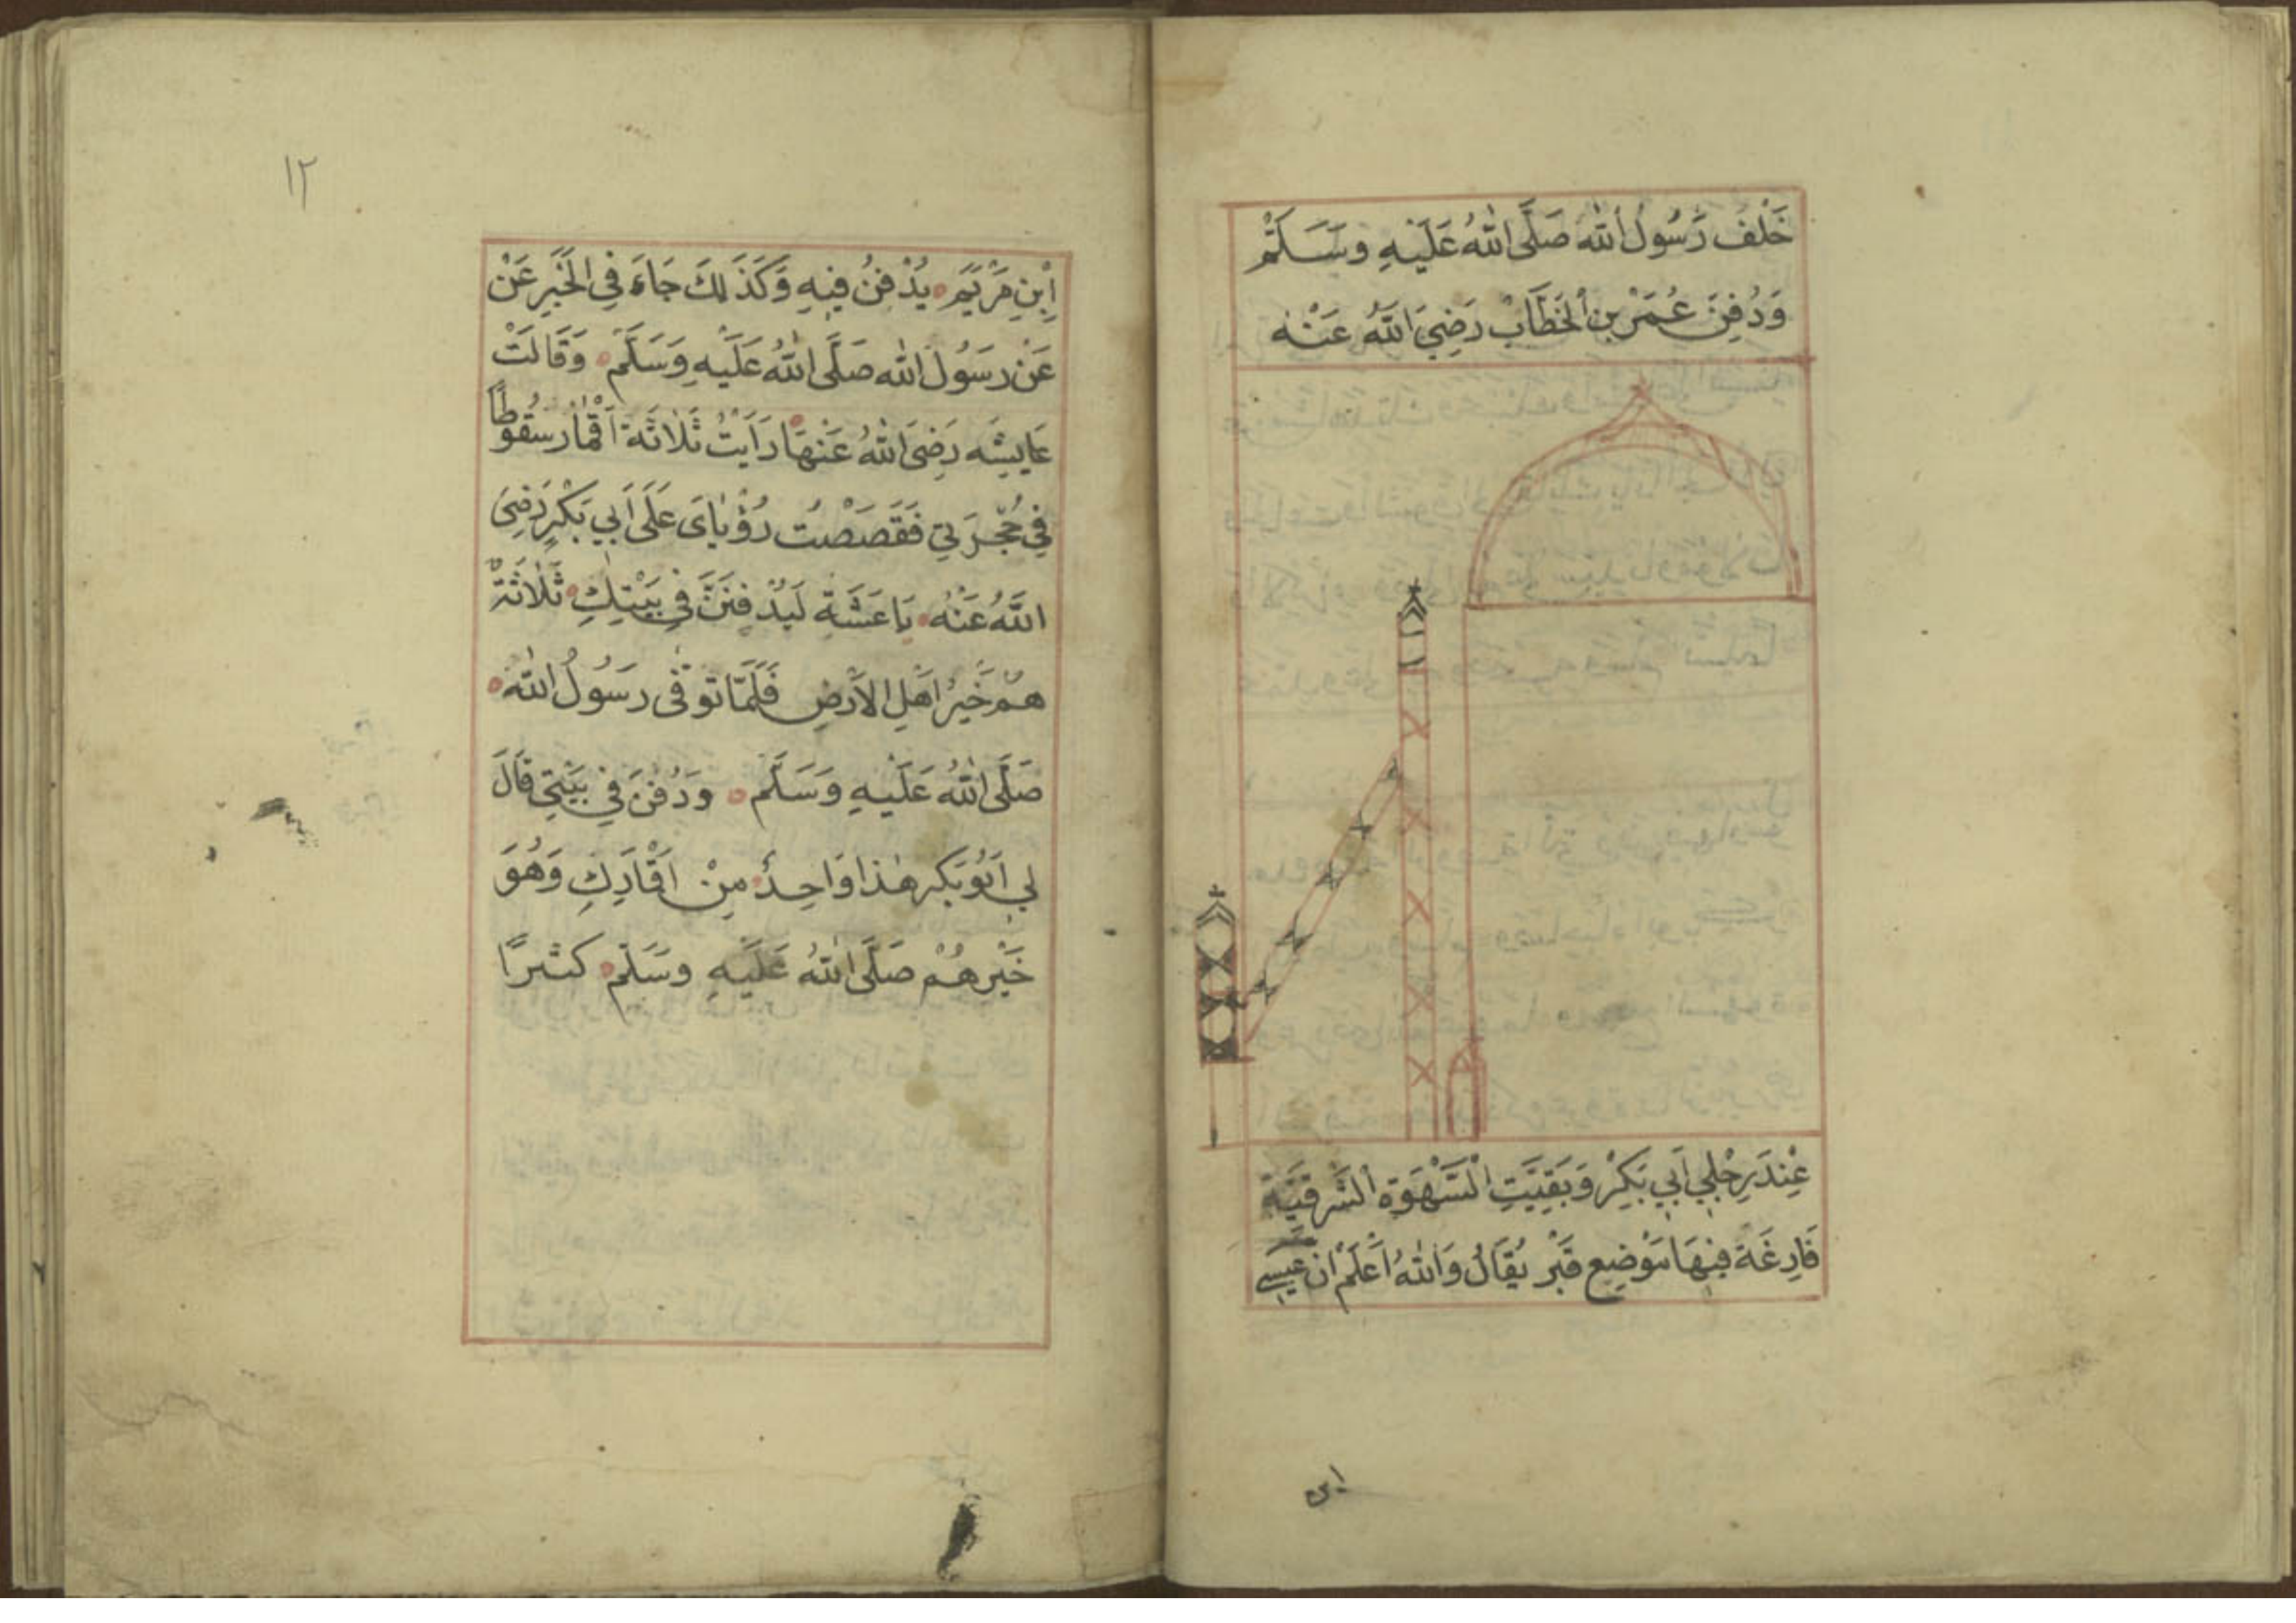 خَلْفَ رَسُولُ اللّٰه صَلَّى اللّٰهُ عَلَيْهِ وسَسَلَّم
وَدُفِنَ عُمَرْ بن الْخَطَّابْ رَضِيَ اللّٰهُ عَنْهُ
عِنْدَ رِجْلِي اَبِي بَكِرْ وَبَقِيَّتِ السَّهْوَة الشَّرقيَّةَ
فَارِغَةَ فِيهَا مَوْضِع قَبْر يُقَالُ وَاللّٰهُ اَعْلَمْ اَنْ عِيسَى
ابن
١٢
اِبْنِ مَرْيَم يُدْفَنُ فِيهِ وَكَذَلِكَ جَاءَ فِي الْخَبَرِ عَنْ
عَنْ رَسُولُ اللّٰه صَلَّى اللّٰهُ عَلَيْهِ وَسَلَّم وَقَالَتْ
عَايِشَه رَضِىَ اللّٰهُ عَنْهَا رَاَيْتُ ثَلَاثَةَ اَقْمَارْ سُقُوطًا
فِي حُجْرَتِي فَقَصَصْتُ رُؤْيَاىَ عَلَى اَبِي بَكْرٍ رَضِىَ
اللّٰهُ عَنْهُ يَا عَشَة لَيُدْفِنَنَّ فِي بَيْتِكِ ثَلَاثَةٌ
هُمْ خَيْرُ اَهْلِ الاَرْضِ فَلَمَّا تَوفّى رَسُولُ اللّٰه
صَلَّى اللّٰهُ عَلَيْهِ وَسَلَّم وَدُفِنَ فِي بَيْتِي قَالَ
لِي اَبُو بَكِر هٰذَا وَاحِدٌ مِنْ اَقْمَارِكِ وَهُوَ
خَيْرهُمْ صَلَّى اللّٰهُ عَلَيْهِ وسَلَّم كَثيرًا